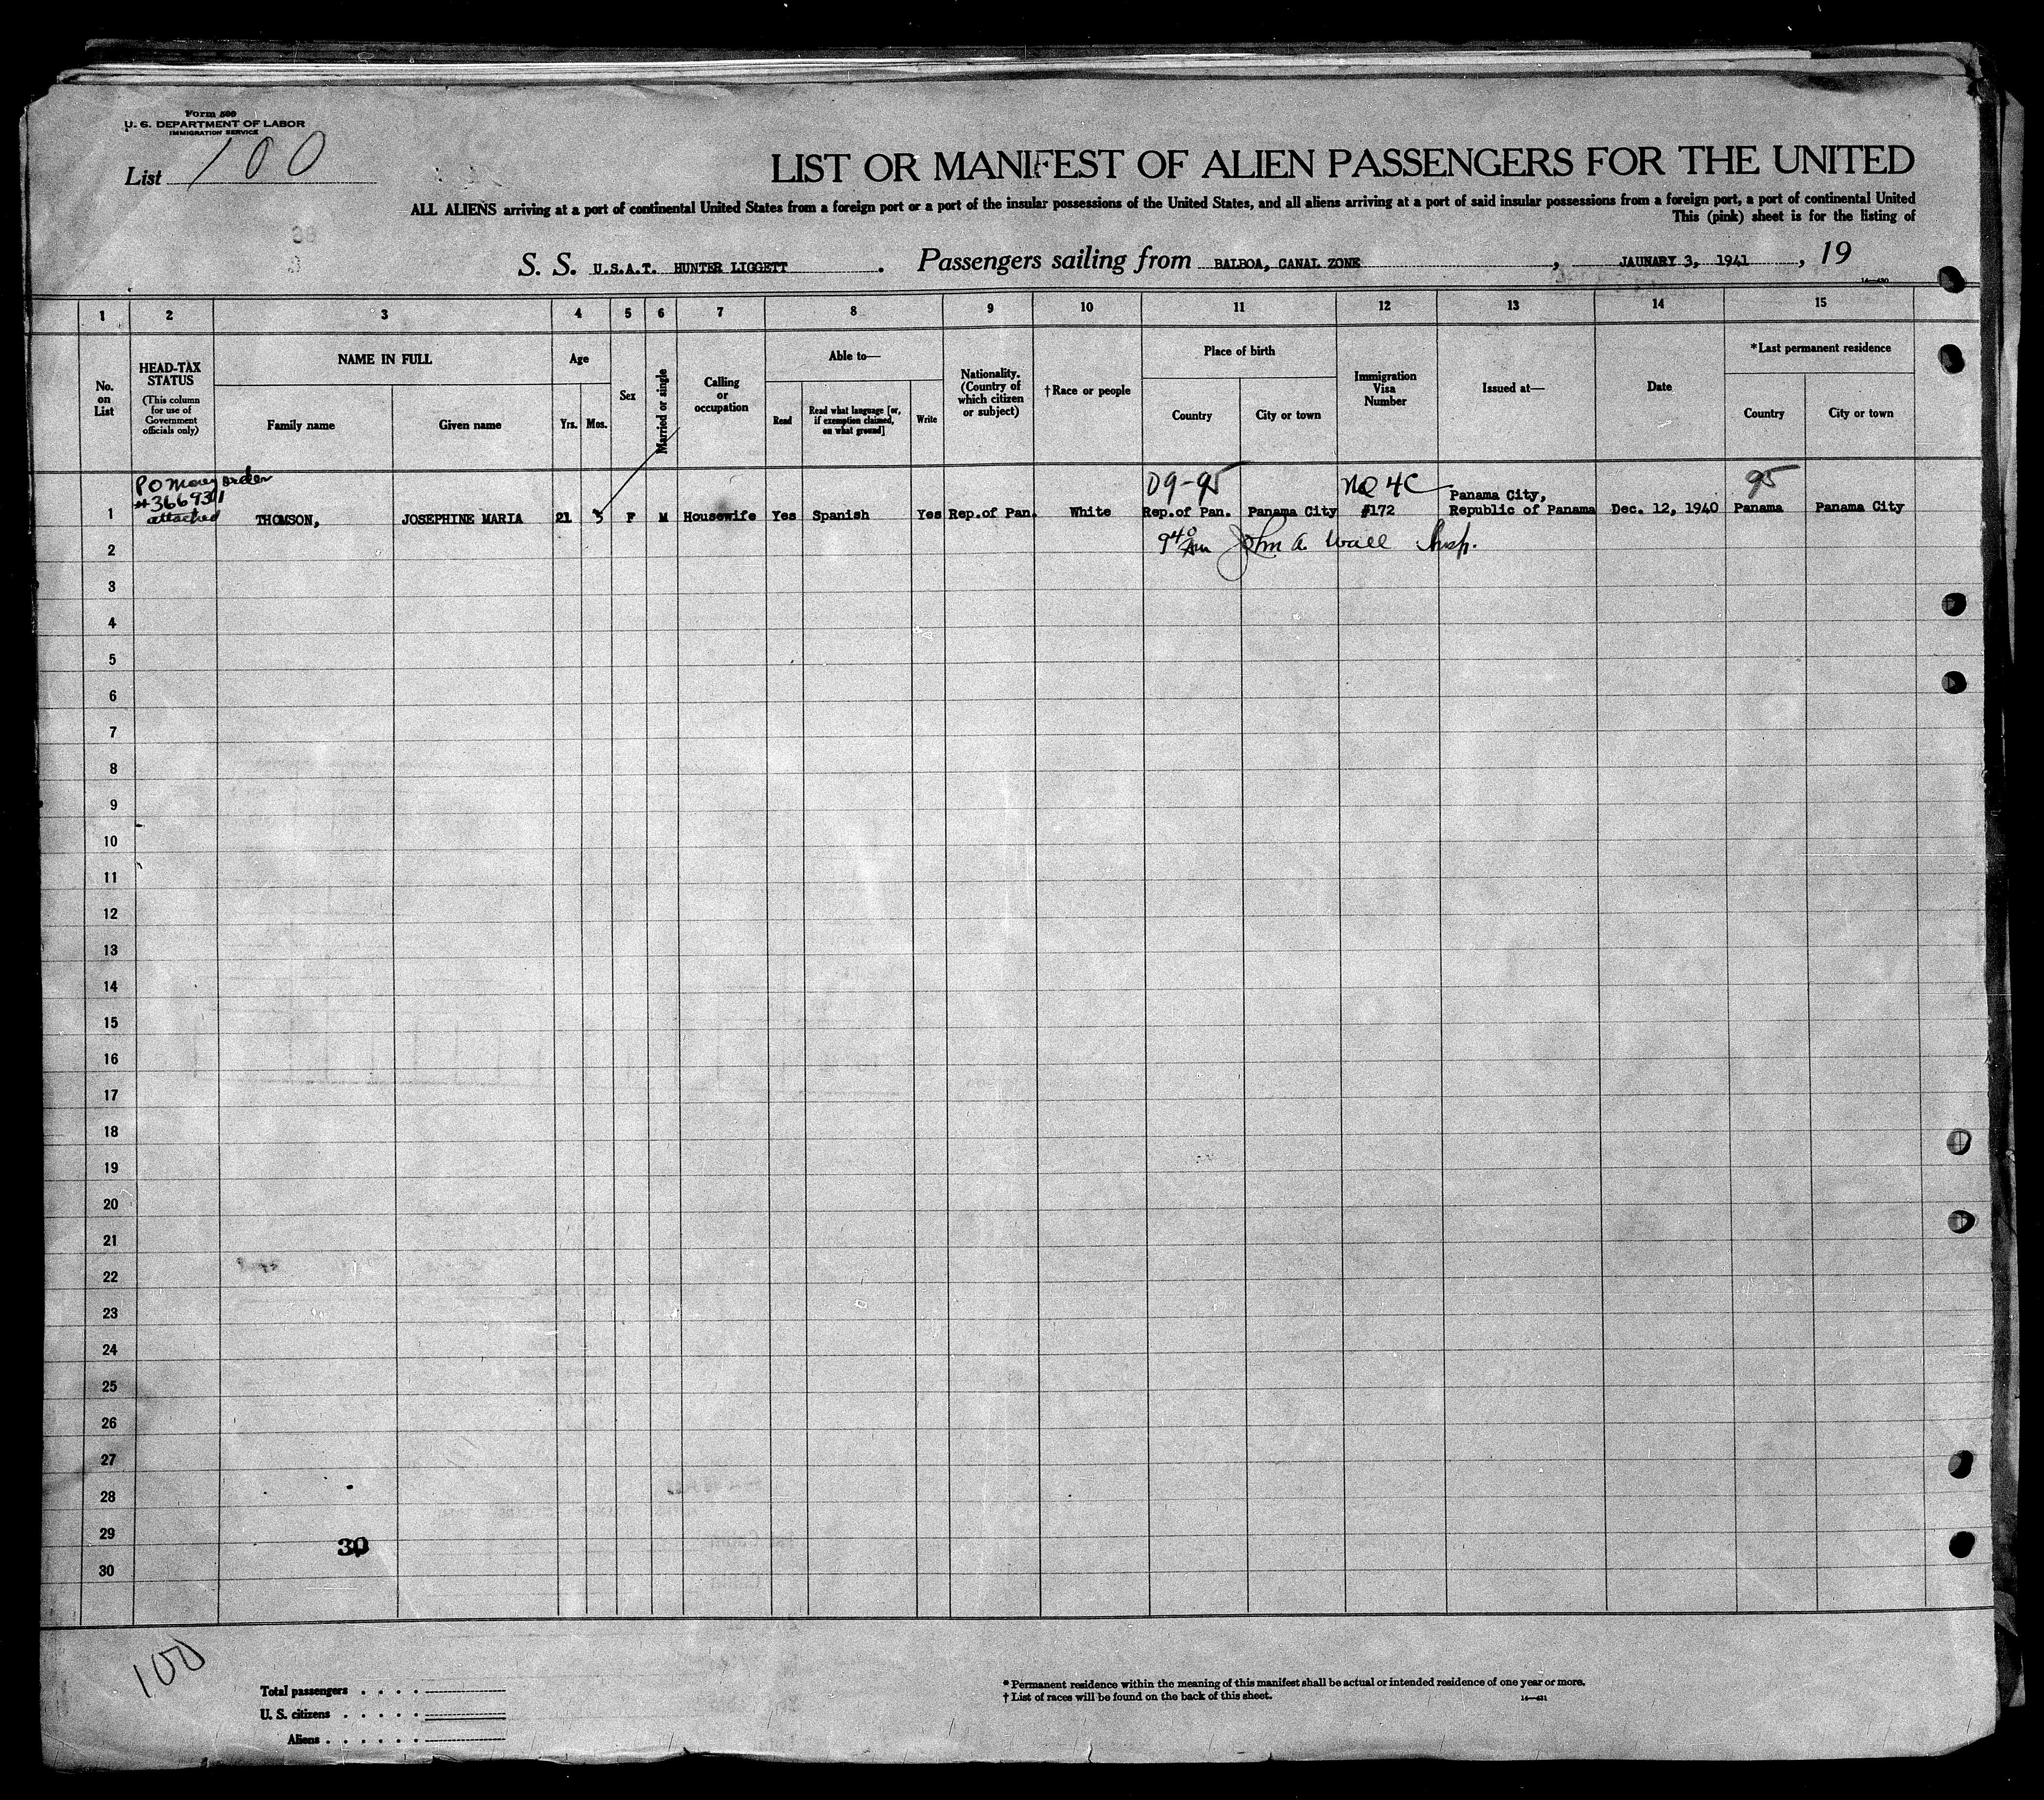 Form 500
U. S. DEPARTMENT OF LABOR
IMMIGRATION SERVICE
List 100
LIST OR MANIFEST OF ALIEN PASSENGERS FOR THE UNITED
ALL ALIENS arriving at a port of continental United States from a foreign port or a port of the insular possessions of the United States, and all aliens arriving at a port of said insular possessions from a foreign port, a port of continental United
This (pink) sheet is for the listing of
S. S. U.S.A.T. HUNTER LIGGETT. Passengers sailing from BALBOA, CANAL ZONE, JAUNARY 3, 1941, 19
1 2 3 4 5 6 7 8 9 10 11 12 13 14 15
No. on List
HEAD-TAX STATUS
(This column for use of Government officials only)
NAME IN FULL
Family name
Given name
Age
Yrs. Mos.
Sex
Married or single
Calling or occupation
Able to—
Read
Read what language [or, if exemption claimed, on what ground]
Write
Nationality. (Country of which citizen or subject)
† Race or people
Place of birth
Country
City or town
Immigration Visa Number
Issued at—
Date
*Last permanent residence
Country
City or town
PO Money order
attached
09-95
NQ 4C
95
Panama City,
1 THOMSON, JOSEPHINE MARIA 21 F M Housewife Yes Spanish Yes Rep.of Pan. White Rep.of Pan. Panama City #172 Republic of Panama Dec. 12, 1940 Panama Panama City
2 9 40 Am John A. Wall Insp.
3
4
5
6
7
8
9
10
11
12
13
14
15
16
17
18
19
20
21
22
23
24
25
26
27
28
29
30
30
100
Total passengers
U. S. citizens
Aliens
* Permanent residence within the meaning of this manifest shall be actual or intended residence of one year or more.
† List of races will be found on the back of this sheet.